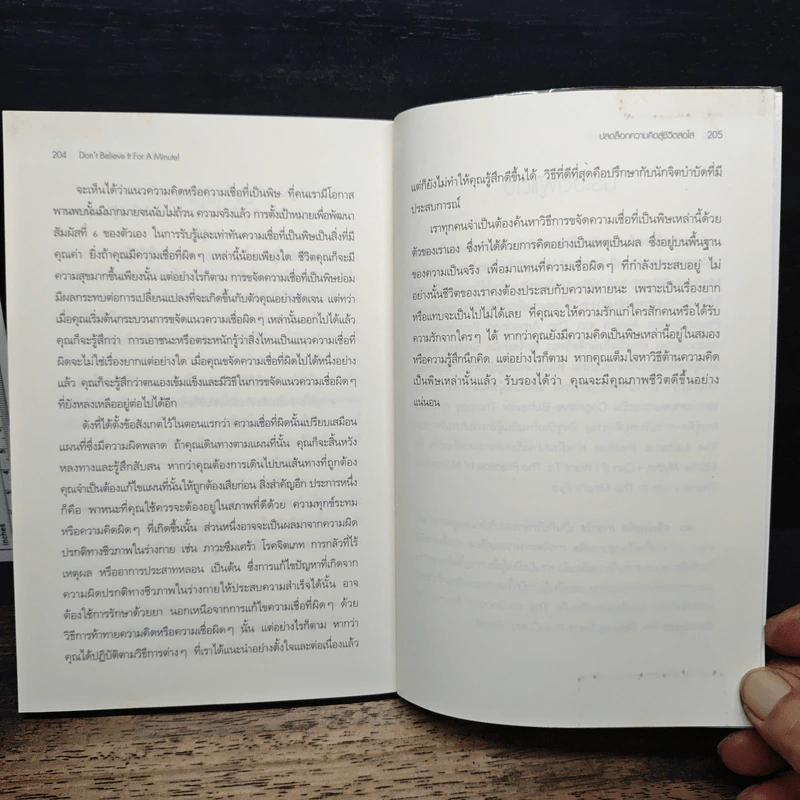 204 Don't Believe It For A Minute!
จะเห็นได้ว่าแนวความคิดหรือความเชื่อที่เป็นพิษ ที่คนเรามีโอกาส
พานพบนั้นมีมากมายจนนับไม่ถ้วน ความจริงแล้ว การตั้งเป้าหมายเพื่อพัฒนา
สัมผัสที่ 6 ของตัวเอง ในการรับรู้และเท่าทันความเชื่อที่เป็นพิษเป็นสิ่งที่มี
คุณค่า ยิ่งถ้าคุณมีความเชื่อที่ผิดๆ เหล่านี้น้อยเพียงใด ชีวิตคุณก็จะมี
ความสุขมากขึ้นเพียงนั้น แต่อย่างไรก็ตาม การขจัดความเชื่อที่เป็นพิษย่อม
มีผลกระทบต่อการเปลี่ยนแปลงที่จะเกิดขึ้นกับตัวคุณอย่างชัดเจน แต่ทว่า
เมื่อคุณเริ่มต้นกระบวนการขจัดแนวความเชื่อผิดๆ เหล่านั้นออกไปได้แล้ว
คุณก็จะรู้สึกว่า การเอาชนะหรือตระหนักรู้ว่าสิ่งไหนเป็นแนวความเชื่อที่
ผิดจะไม่ใช่เรื่องยากแต่อย่างใด เมื่อคุณขจัดความเชื่อที่ผิดไปได้หนึ่งอย่าง
แล้ว คุณก็จะรู้สึกว่าตนเองเข้มแข็งและมีวิธีในการขจัดแนวความเชื่อผิดๆ
ที่ยังหลงเหลืออยู่ต่อไปได้อีก
ดังที่ได้ตั้งข้อสังเกตไว้ในตอนแรกว่า ความเชื่อที่ผิดนั้นเปรียบเสมือน
แผนที่ซึ่งมีความผิดพลาด ถ้าคุณเดินทางตามแผนที่นั้น คุณก็จะสิ้นหวัง
หลงทางและรู้สึกสับสน หากว่าคุณต้องการเดินไปบนเส้นทางที่ถูกต้อง
คุณจำเป็นต้องแก้ไขแผนที่นั้นให้ถูกต้องเสียก่อน สิ่งสำคัญอีก ประการหนึ่ง
ก็คือ พาหนะที่คุณใช้ควรจะต้องอยู่ในสภาพที่ดีด้วย ความทุกข์ระทม
หรือความคิดผิดๆ ที่เกิดขึ้นนั้น ส่วนหนึ่งอาจจะเป็นผลมาจากความผิด
ปรกติทางชีวภาพในร่างกาย เช่น ภาวะซึมเศร้า โรคจิตเภท การกลัวที่ไร้
เหตุผล หรืออาการประสาทหลอน เป็นต้น ซึ่งการแก้ไขปัญหาที่เกิดจาก
ความผิดปรกติทางชีวภาพในร่างกายให้ประสบความสำเร็จได้นั้น อาจ
ต้องใช้การรักษาด้วยยา นอกเหนือจากการแก้ไขความเชื่อที่ผิดๆ ด้วย
วิธีการท้าทายความคิดหรือความเชื่อผิดๆ นั้น แต่อย่างไรก็ตาม หากว่า
คุณได้ปฏิบัติตามวิธีการต่างๆ ที่เราได้แนะนำอย่างตั้งใจและต่อเนื่องแล้ว
ปลดล็อกความคิดสู่ชีวิตสดใส 205
แต่ก็ยังไม่ทำให้คุณรู้สึกดีขึ้นได้ วิธีที่ดีที่สุดคือปรึกษากับนักจิตบำบัดที่มี
ประสบการณ์
เราทุกคนจำเป็นต้องค้นหาวิธีการขจัดความเชื่อที่เป็นพิษเหล่านี้ด้วย
ตัวของเราเอง ซึ่งทำได้ด้วยการคิดอย่างเป็นเหตุเป็นผล ซึ่งอยู่บนพื้นฐาน
ของความเป็นจริง เพื่อมาแทนที่ความเชื่อผิดๆ ที่กำลังประสบอยู่ ไม่
อย่างนั้นชีวิตของเราคงต้องประสบกับความหายนะ เพราะเป็นเรื่องยาก
หรือแทบจะเป็นไปไม่ได้เลย ที่คุณจะให้ความรักแก่ใครสักคนหรือได้รับ
ความรักจากใครๆ ได้ หากว่าคุณยังมีความคิดเป็นพิษเหล่านี้อยู่ในสมอง
หรือความรู้สึกนึกคิด แต่อย่างไรก็ตาม หากคุณเต็มใจหาวิธีต้านความคิด
เป็นพิษเหล่านั้นแล้ว รับรองได้ว่า คุณจะมีคุณภาพชีวิตดีขึ้นอย่าง
แน่นอน